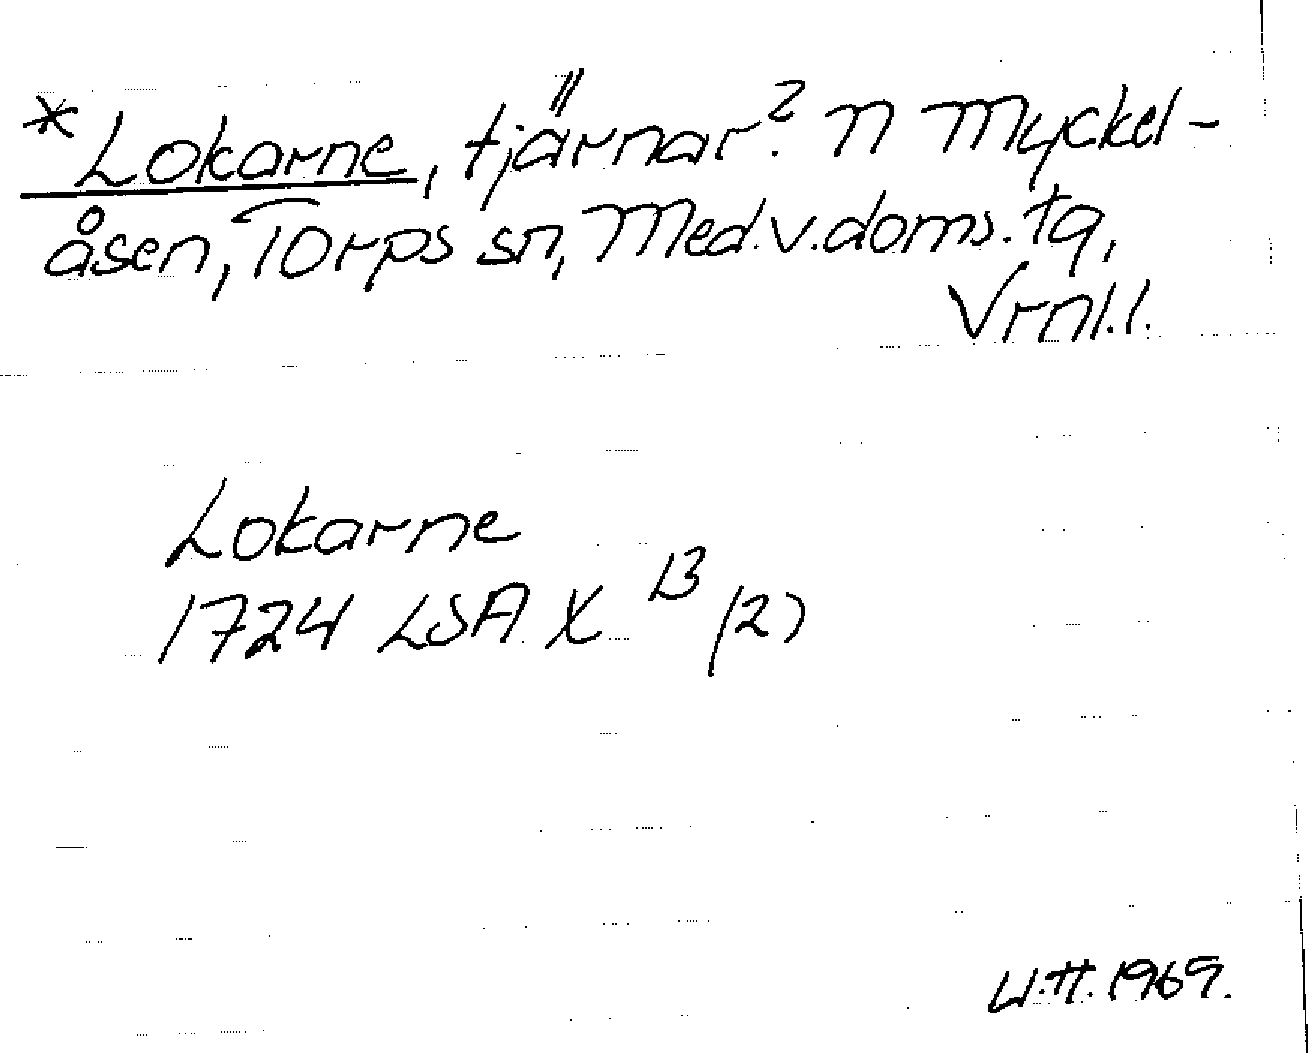 *Lokarne, tjärnar? n Myckel-
åsen, Torps sn, Med.v.doms.tg,
Vrnl.l.
Lokarne
1724 LSA X 13 (2)
W.H.1969.